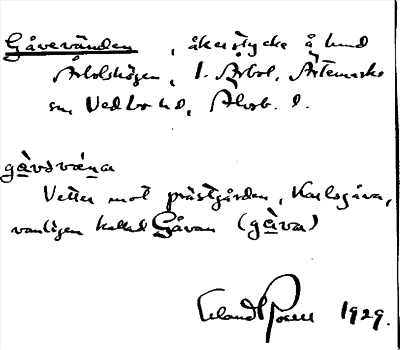 Gåvevänden, åkerstycke å lund
Årbolshögen, 1. Årbol, Ärtemarks
sn, Vedbo hd, Älvsb. l.
gåvəväna
Vetter mot prästgården, Karlsgåva,
vanligen kallad Gåvan (gåva)
Erland Rosell 1929.